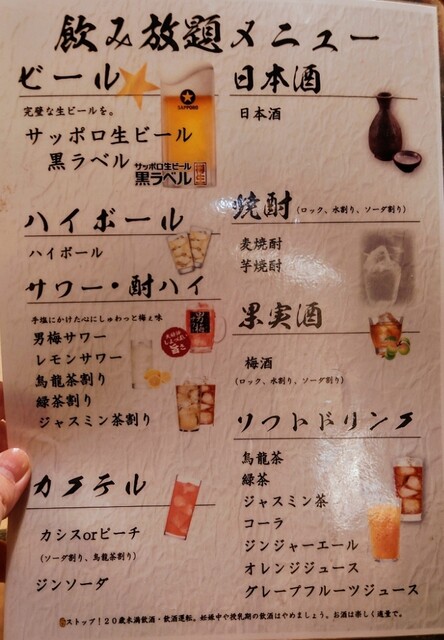 飲み放題メニュー
ビール
完璧な生ビールを。
サッポロ生ビール
黒ラベル
SAPPORO
サッポロ生ビール
黒ラベル
ハイボール
ハイボール
サワー・酎ハイ
手塩にかけた心にしゅわっと梅ぇ味
男梅サワー
レモンサワー
烏龍茶割り
緑茶割り
ジャスミン茶割り
カクテル
カシスorピーチ
(ソーダ割り、烏龍茶割り)
ジンソーダ
日本酒
日本酒
焼酎 (ロック、水割り、ソーダ割り)
麦焼酎
芋焼酎
果実酒
梅酒
(ロック、水割り、ソーダ割り)
ソフトドリンク
烏龍茶
緑茶
ジャスミン茶
コーラ
ジンジャーエール
オレンジジュース
グレープフルーツジュース
ストップ！20歳未満飲酒・飲酒運転。妊娠中や授乳期の飲酒はやめましょう。お酒は楽しく適量で。